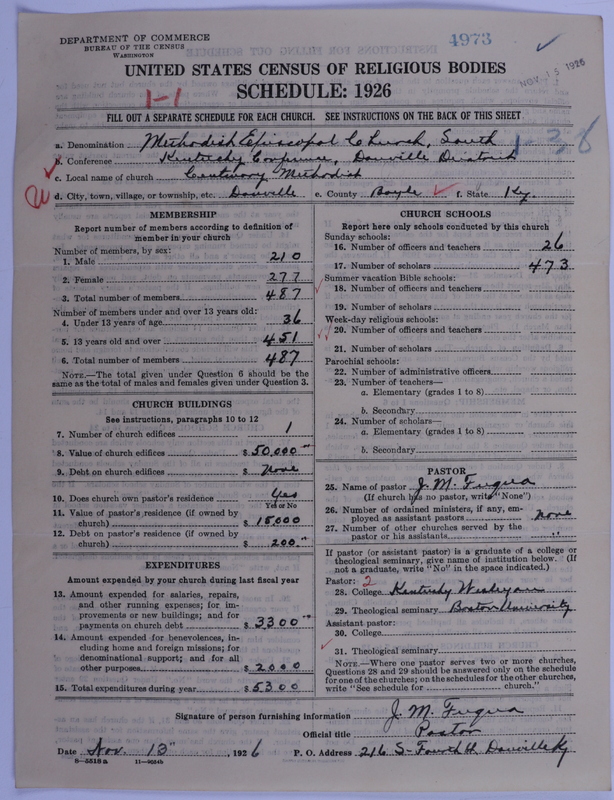 DEPARTMENT OF COMMERCE
BUREAU OF THE CENSUS
WASHINGTON
4973
NOV 15 1926
UNITED STATES CENSUS OF RELIGIOUS BODIES
SCHEDULE: 1926
1-1
FILL OUT A SEPARATE SCHEDULE FOR EACH CHURCH. SEE INSTRUCTIONS ON THE BACK OF THIS SHEET
a. Denomination Methodist Episcopal Church, South
1-38
b. Conference Kentucky Conference, Danville District
c. Local name of church Centenary Methodist
d. City, town, village, or township, etc. Danville e. County Boyle f. State Ky.
MEMBERSHIP
Report number of members according to definition of
member in your church
Number of members, by sex:
1. Male 210
2. Female 277
3. Total number of members 487
Number of members under and over 13 years old:
4. Under 13 years of age 36
5. 13 years old and over 451
6. Total number of members 487
NOTE.—The total given under Question 6 should be the
same as the total of males and females given under Question 3.
CHURCH BUILDINGS
See instructions, paragraphs 10 to 12
7. Number of church edifices 1
8. Value of church edifices $ 50,000
9. Debt on church edifices $ None
10. Does church own pastor's residence Yes
Yes or No
11. Value of pastor's residence (if owned by
church) $ 15,000
12. Debt on pastor's residence (if owned by
church) $ 200
EXPENDITURES
Amount expended by your church during last fiscal year
13. Amount expended for salaries, repairs,
and other running expenses; for im-
provements or new buildings; and for
payments on church debt $ 3300
14. Amount expended for benevolences, in-
cluding home and foreign missions; for
denominational support; and for all
other purposes $ 2000
15. Total expenditures during year $ 5300
CHURCH SCHOOLS
Report here only schools conducted by this church
Sunday schools:
16. Number of officers and teachers 26
17. Number of scholars 473
Summer vacation Bible schools:
18. Number of officers and teachers
19. Number of scholars
Week-day religious schools:
20. Number of officers and teachers
21. Number of scholars
Parochial schools:
22. Number of administrative officers
23. Number of teachers—
a. Elementary (grades 1 to 8)
b. Secondary
24. Number of scholars—
a. Elementary (grades 1 to 8)
b. Secondary
PASTOR
25. Name of pastor J. M. Fuqua
(If church has no pastor, write "None")
26. Number of ordained ministers, if any, em-
ployed as assistant pastors None
27. Number of other churches served by the
pastor or his assistants "
If pastor (or assistant pastor) is a graduate of a college or
theological seminary, give name of institution below. (If
not a graduate, write "No" in the space indicated.)
Pastor: 2
28. College Kentucky Wesleyan
29. Theological seminary Boston University
Assistant pastor:
30. College
31. Theological seminary
NOTE.—Where one pastor serves two or more churches,
Questions 28 and 29 should be answered only on the schedule
for one of the churches; on the schedules for the other churches,
write "See schedule for church."
Signature of person furnishing information J. M. Fuqua
Official title Pastor
Date Nov. 13", 1926 P. O. Address 216 S- Fourth St, Danville Ky
8—5518a 11—9024b